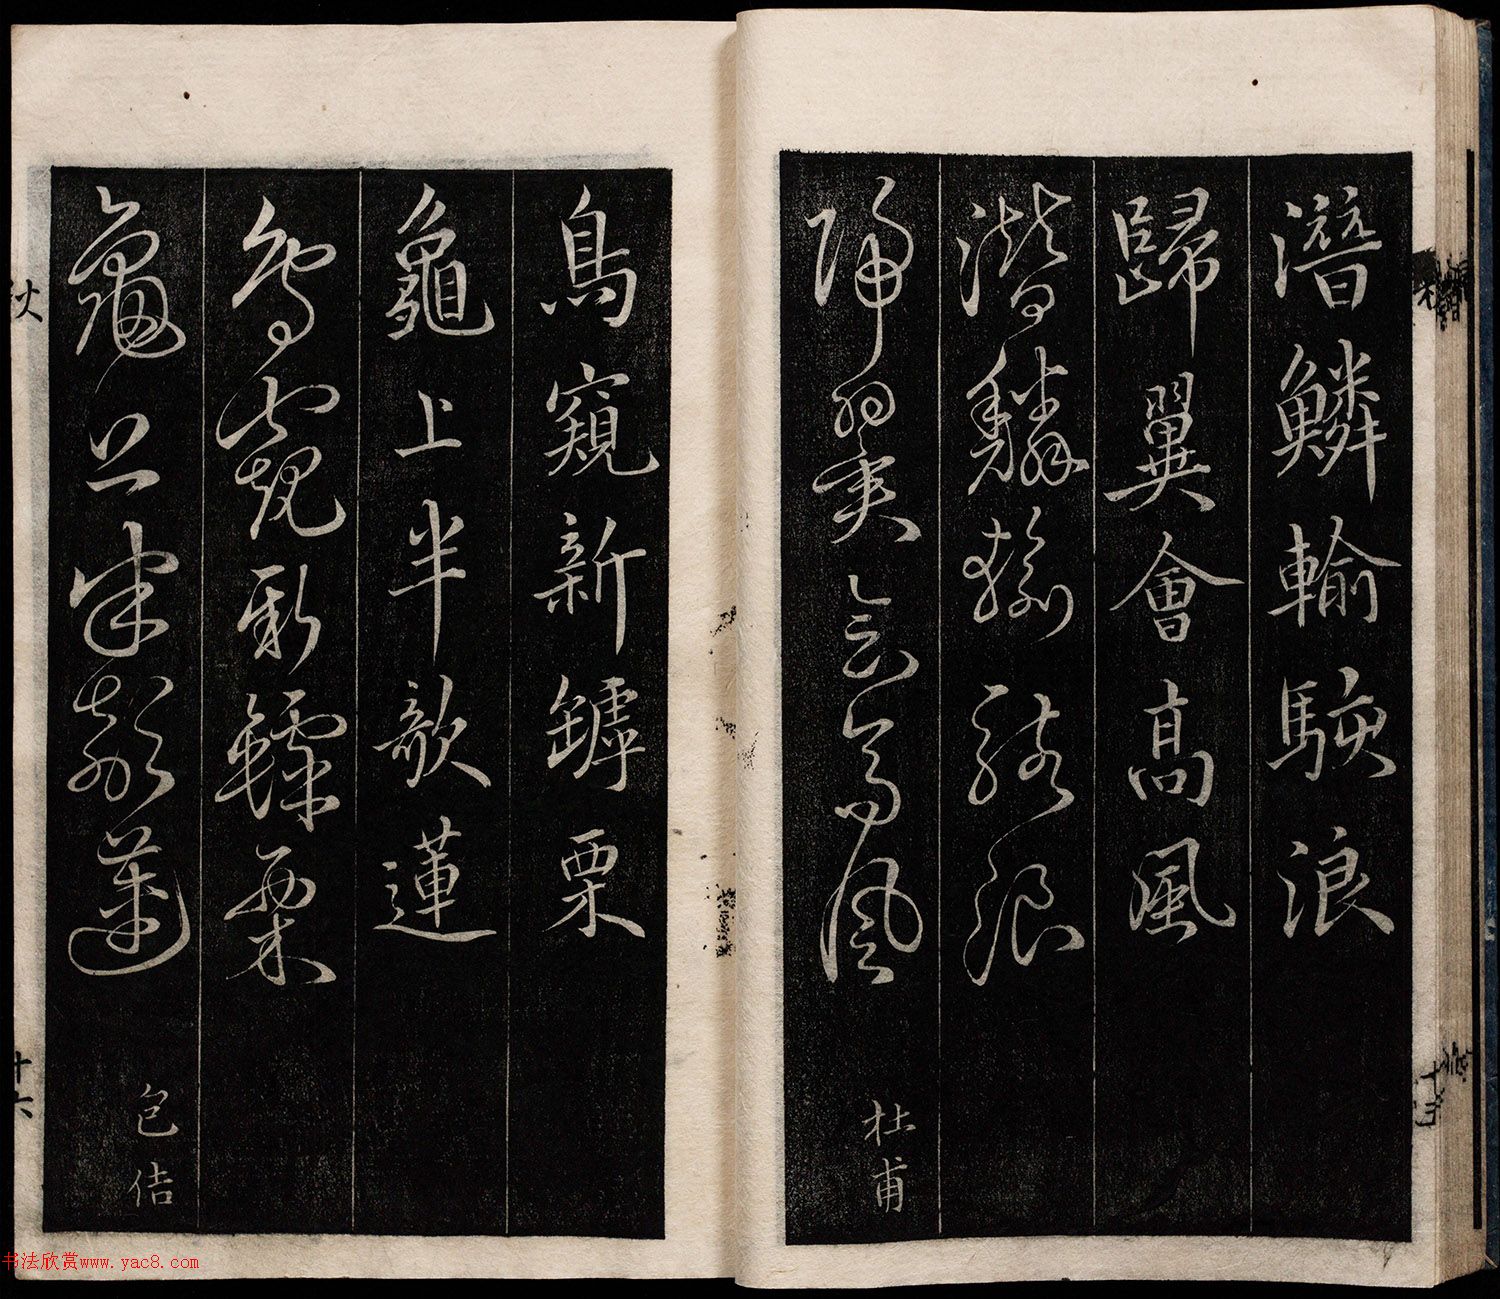 潛鱗輸駭浪
歸翼會高風
潛鱗輸駭浪
歸翼會高風
杜甫
鳥窺新罅栗
龜上半欹蓮
鳥窺新罅栗
龜上半欹蓮
包佶
十六
书法欣赏www.yac8.com